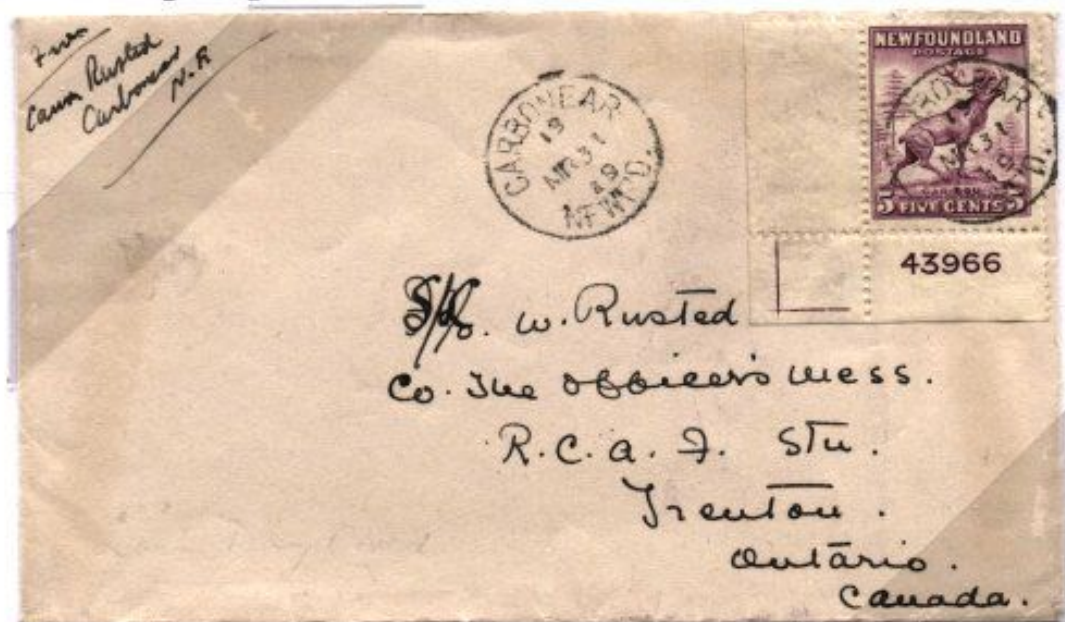 From
Canon Rusted
Carbonear
N.F.
CARBONEAR
19
MR 31
49
NFW'D.
NEWFOUNDLAND
POSTAGE
CARIBOU
5 FIVE CENTS 5
CARBONEAR
19
MR 31
49
43966
W. Rusted
Co. The Officer's Mess.
R.C.A.F. Stn.
Trenton.
Ontario.
Canada.